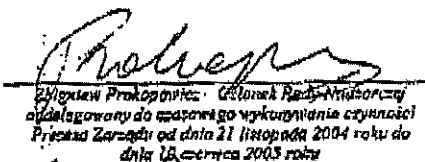 Prokopowicz
Zbigniew Prokopowicz - Członek Rady Nadzorczej
oddelegowany do czasowego wykonywania czynności
Prezesa Zarządu od dnia 21 listopada 2004 roku do
dnia 18 czerwca 2005 roku